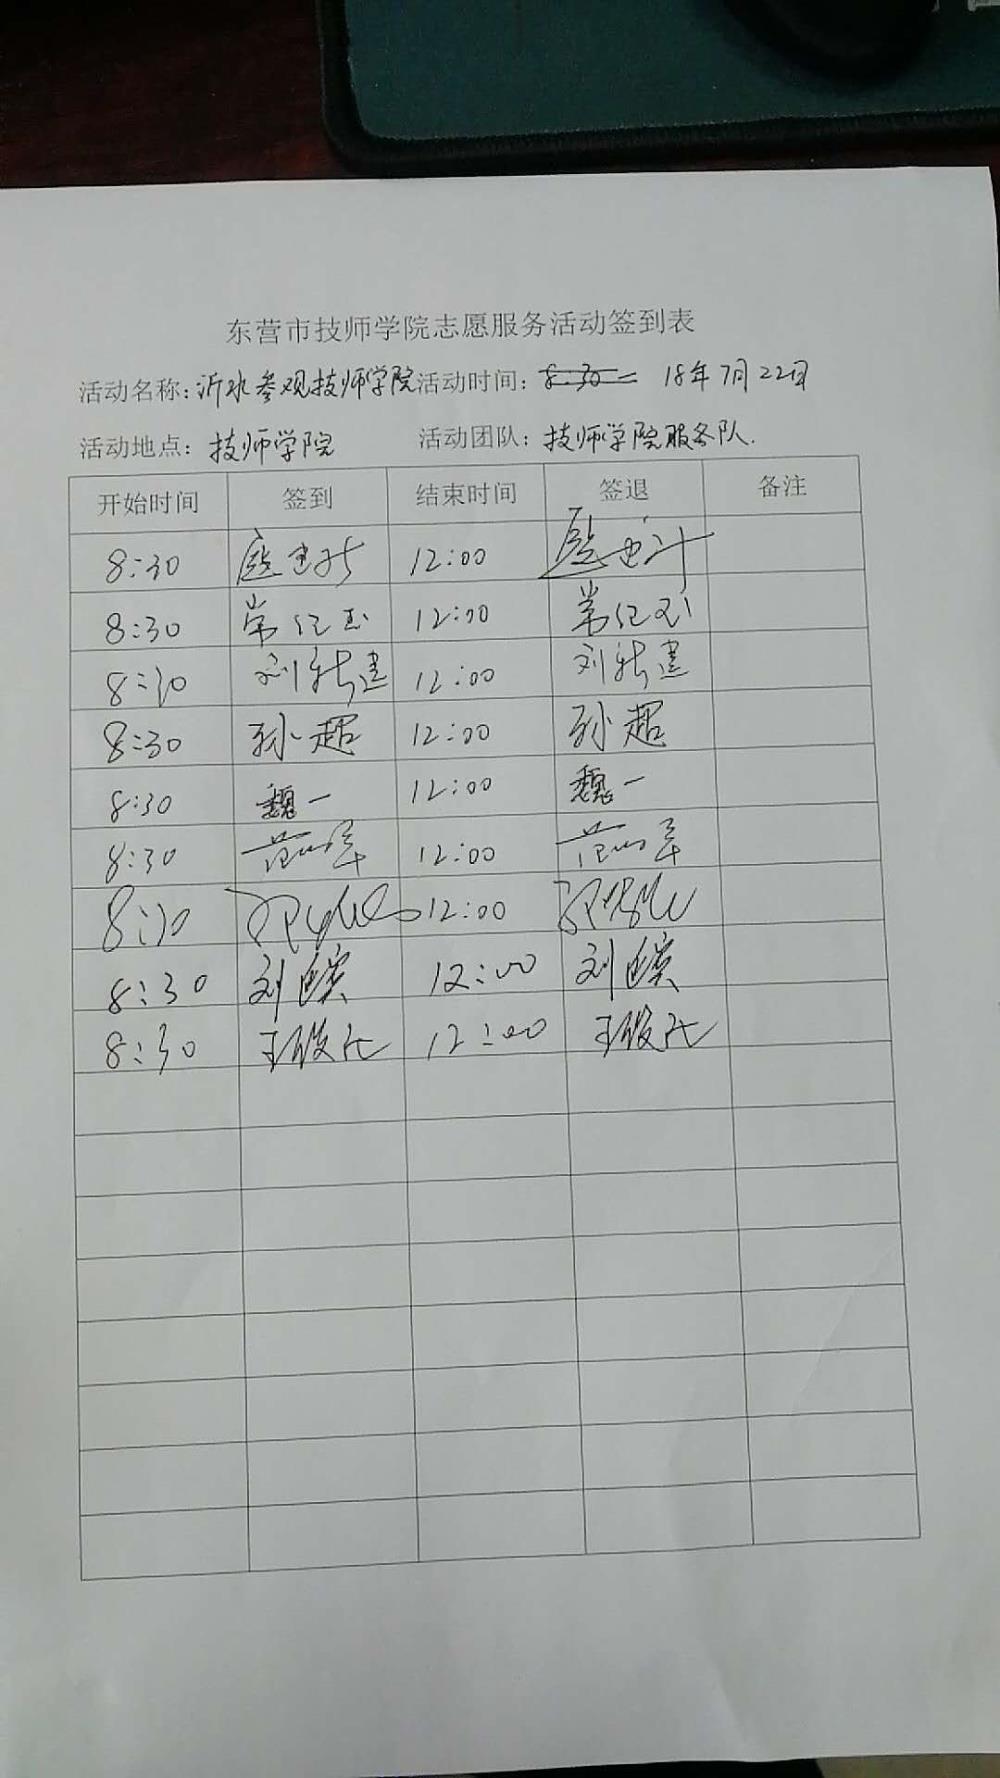 东营市技师学院志愿服务活动签到表
活动名称：沂水参观技师学院 活动时间：18年7月22日
活动地点：技师学院 活动团队：技师学院服务队.
开始时间 签到 结束时间 签退 备注
8:30 12:00
8:30 常 12:00 常
8:30 刘新建 12:00 刘新建
8:30 孙超 12:00 孙超
8:30 魏一 12:00 魏一
8:30 范 12:00 范
8:30 12:00
8:30 刘 12:00 刘
8:30 王 12:00 王